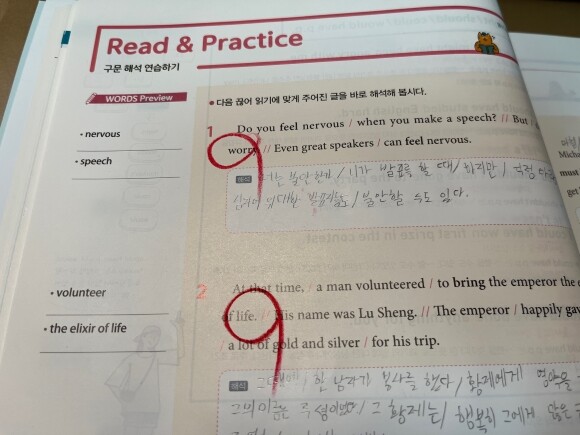 Read & Practice
구문 해석 연습하기
WORDS Preview
• nervous
• speech
• volunteer
• the elixir of life
• 다음 끊어 읽기에 맞게 주어진 글을 바로 해석해 봅시다.
1 Do you feel nervous / when you make a speech? // But /
worry // Even great speakers / can feel nervous.
해석 불안한가 / 네가 발표를 할 때 / 하지만 / 걱정
위대한 / 불안할 수도 있다.
2 At that time, / a man volunteered / to bring the emperor the
of life. // His name was Lu Sheng. // The emperor / happily gav
/ a lot of gold and silver / for his trip.
해석 / 한 남자가 봉사를 했다 / 황제에게
그의 이름은 / 그 황제는 / 행복히 그에게 많은
Micha
must
get